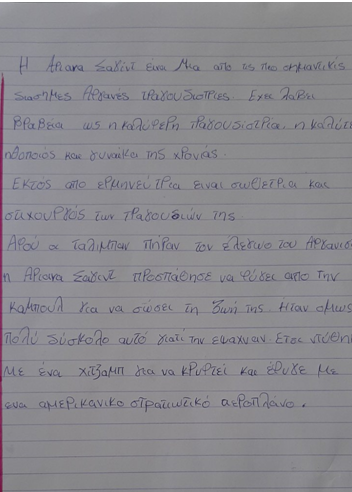 Η Αριάνα Σαγίντ είναι μια από τις πιο σημαντικές
διάσημες Αφγανές τραγουδίστριες. Έχει λάβει
βραβεία ως η καλύρερη τραγουδίστρια, η καλύτε
ηθοποιός και γυναίκα της χρονιάς.
Εκτός από ερμηνεύτρια είναι συνθέτρια και
στιχουργός των τραγουδιών της.
Αφού οι ταλιμπάν πήραν τον έλεγχο του Αφγανισ
η Αριάνα Σαγίντ προσπάθησε να φύγει από την
Καμπούλ για να σώσει τη ζωή της. Ήταν όμως
πολύ δύσκολο αυτό γιατί την έψαχναν. Έτσι ντύθη
με ένα χιτζάμπ για να κρυφτεί και έφυγε με
ένα αμερικάνικο στρατιωτικό αεροπλάνο.